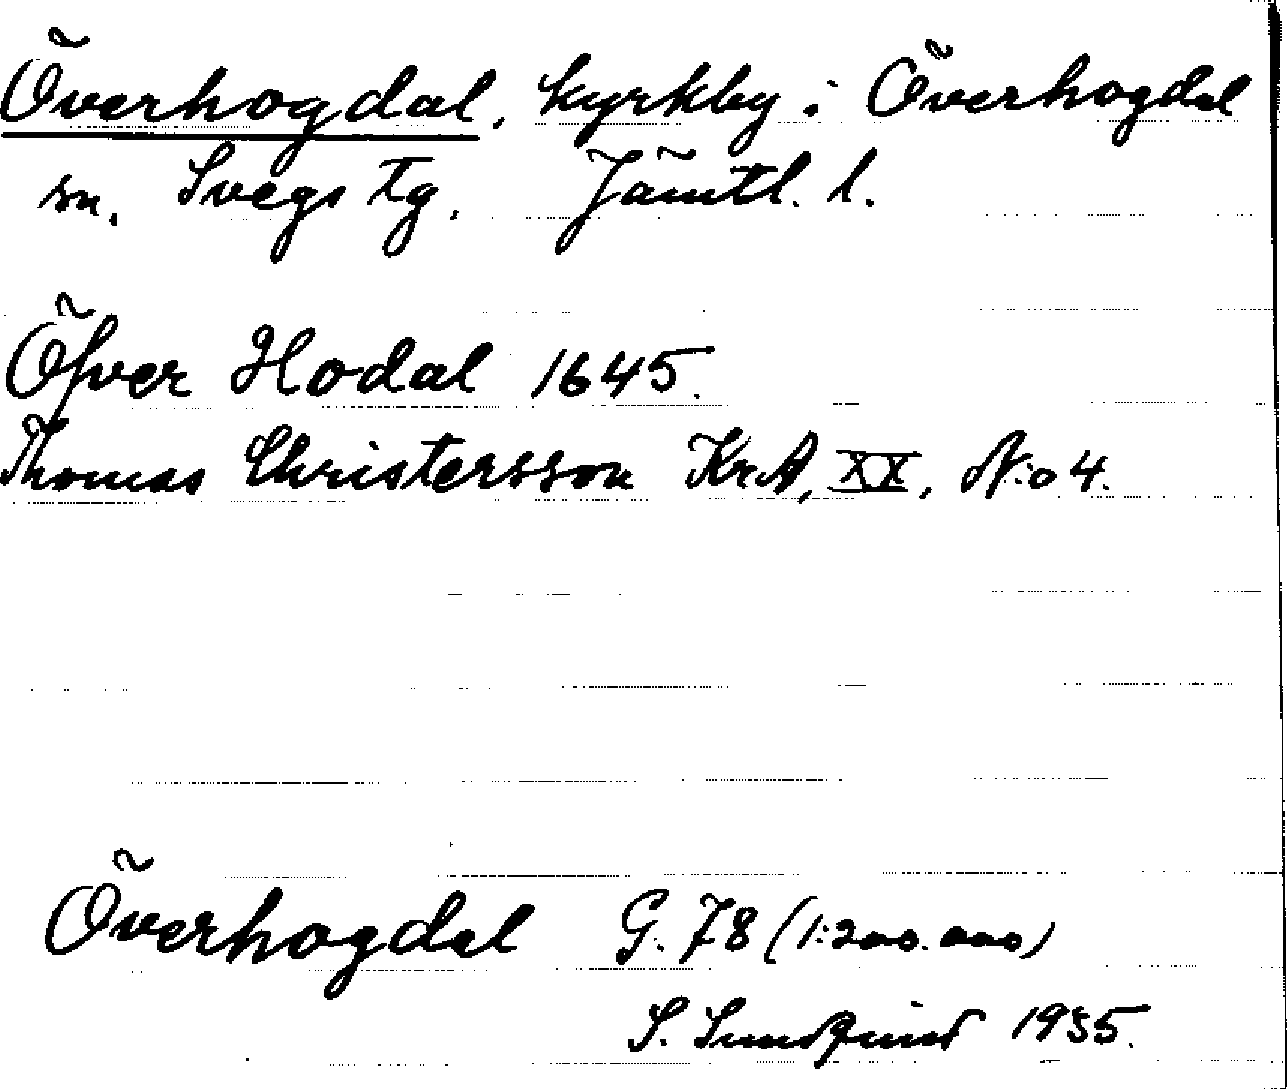 Överhogdal, kyrkby i Överhogdal
sn. Svegs tg. Jämtl. l.
Öfver Hodal 1645.
Thomas Christersson KrA, XX, N:o 4.
Överhogdal G. 78 (1:200.000)
S. Sundquist 1935.